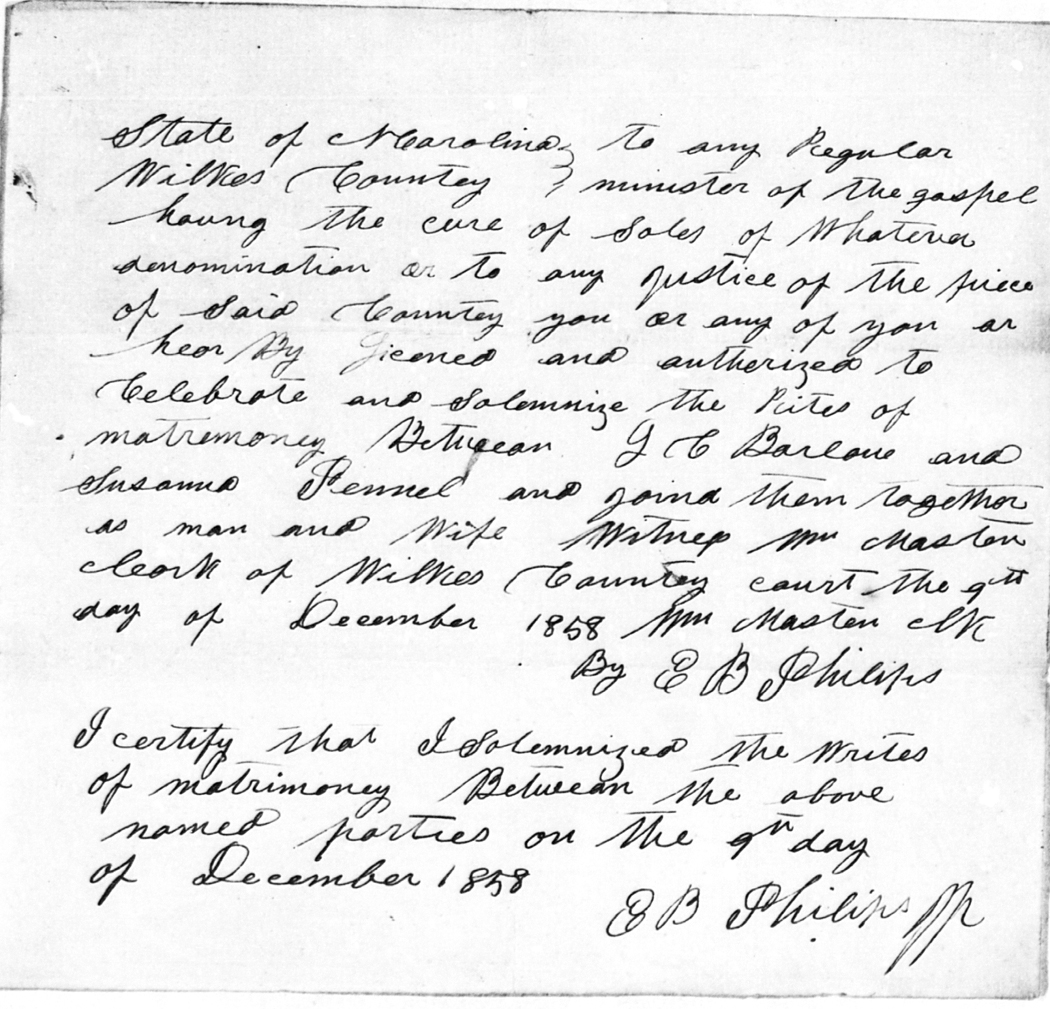 State of N Carolina } to any Regular
Wilkes Countey } minister of the gospel
haung the cure of Soles of Whatever
denomination or to any justice of the piece
of Said Countey you or any of you ar
hear By and autherized to
Celebrate and Solemnize the Rites of
matremoney Betweean J C Barlow and
Susanna Pennel and joind them together
as man and Wife Witness Wm Masten
Cleark of Wilkes Countey court the 9th
day of December 1858 Wm Masten Clk
By E B Philips
I certify that I Solemnized the Writes
of matrimoney Betweean the above
named parties on the 9th day
of December 1858
E B Philips JP